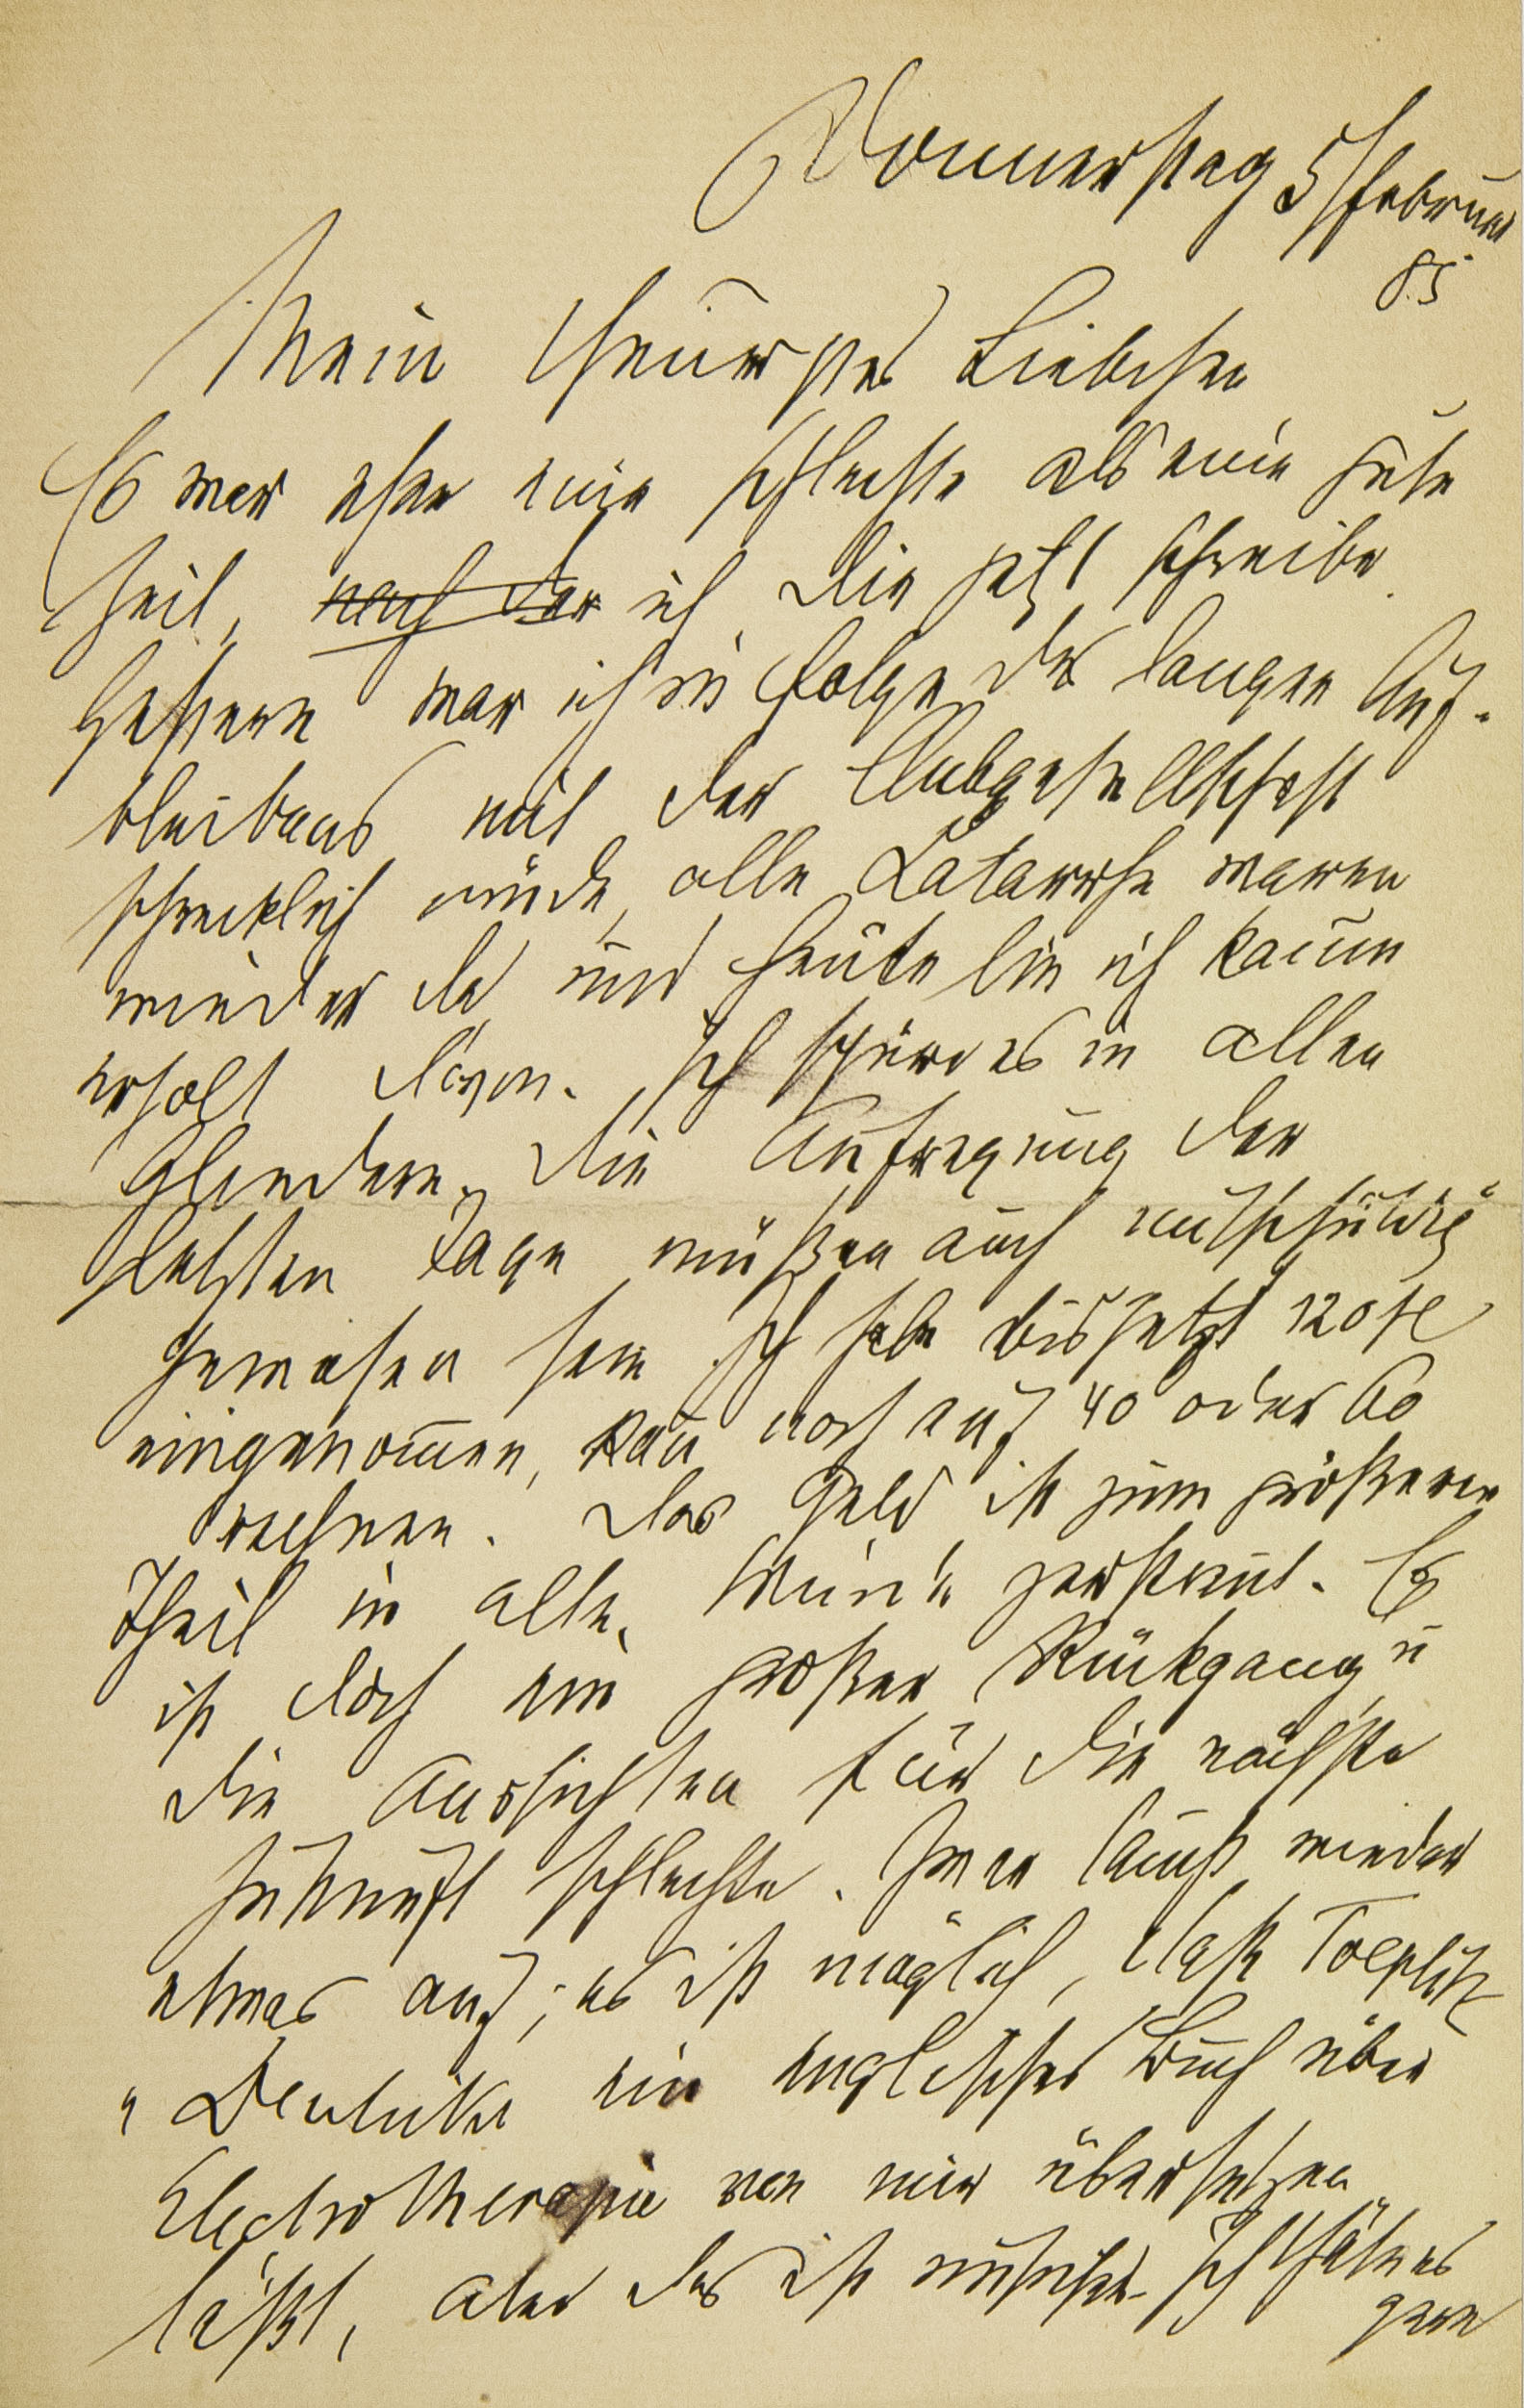 Donnerstag 5/Februar
85
Mein theuerstes Liebchen
Es war eher eine schlechte als eine gute
Zeit, nach der ich Dir jetzt schreibe.
Gestern war ich in Folge des langen Auf-
bleibens mit der Clubgesellschaft
schrecklich müde, alle Katarrhe waren
wieder da und heute bin ich kaum
erholt davon. Ich spüre es in allen
Gliedern. Die Aufregung der
letzten Tage müßen auch mitschuldig
gewesen sein. Ich habe bis jetzt 120 fl
eingenom̄en, kan̄ noch auf 40 oder 60
rechnen. Das Geld ist zum größeren
Theil in alle Winde zerstreut. Es
ist doch ein großer Rückgang u
die Aussichten für die nächste
Zukunft schlechte. Zwar taucht wieder
etwas auf; es ist möglich, daß Toeplitz
u Deuticke ein englisches Buch über
Electrotherapie von mir übersetzen
läßt, aber das ist unsicher. Ich thäte es
gern